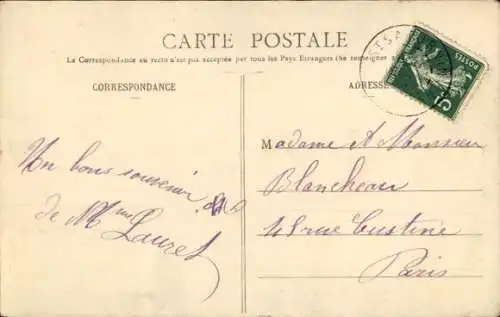 CARTE POSTALE
La Correspondance au recto n'est pas acceptée par tous les Pays Etrangers (Se renseigner
CORRESPONDANCE
ADRESSE
Un bons souvenir
de Mme Lauret
Madame et Monsieur
Blancheau
48 rue Custine
Paris
POSTES
5